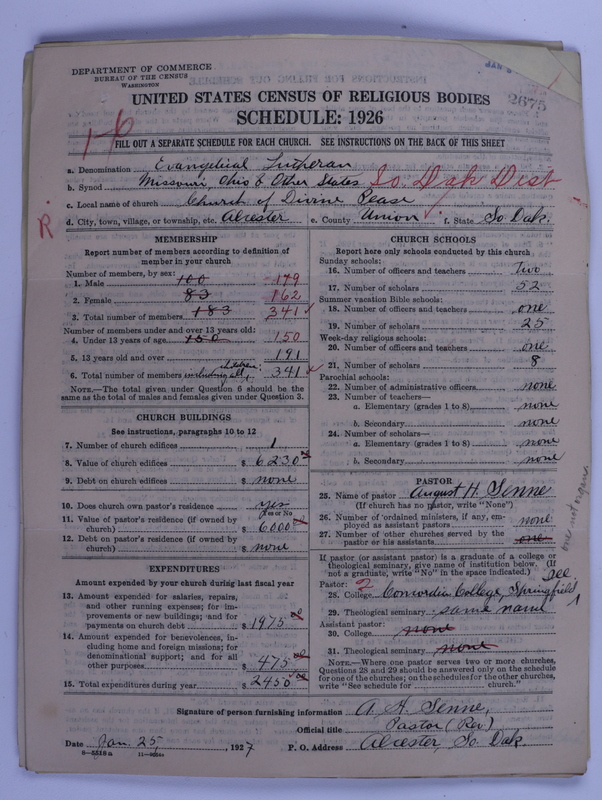 DEPARTMENT OF COMMERCE
BUREAU OF THE CENSUS
WASHINGTON
2675
UNITED STATES CENSUS OF RELIGIOUS BODIES
SCHEDULE: 1926
FILL OUT A SEPARATE SCHEDULE FOR EACH CHURCH. SEE INSTRUCTIONS ON THE BACK OF THIS SHEET
a. Denomination Evangelical Lutheran
b. Synod Missouri, Ohio & Other States So. Dak Dist
c. Local name of church Church of Divine Pease
d. City, town, village, or township, etc. Alcester e. County Union f. State So. Dak.
R
MEMBERSHIP
Report number of members according to definition of
member in your church
Number of members, by sex:
1. Male 100 179
2. Female 83 162
3. Total number of members 183 341
Number of members under and over 13 years old:
4. Under 13 years of age 150 150
5. 13 years old and over 191
6. Total number of members including all children 341
NOTE.—The total given under Question 6 should be the
same as the total of males and females given under Question 3.
CHURCH BUILDINGS
See instructions, paragraphs 10 to 12
7. Number of church edifices 1
8. Value of church edifices $ 6230.00
9. Debt on church edifices $ none
10. Does church own pastor's residence? yes
(Yes or No)
11. Value of pastor's residence (if owned by
church) $ 6000
12. Debt on pastor's residence (if owned by
church) $ none
EXPENDITURES
Amount expended by your church during last fiscal year
13. Amount expended for salaries, repairs,
and other running expenses; for im-
provements or new buildings; and for
payments on church debt $ 1975.00
14. Amount expended for benevolences, in-
cluding home and foreign missions; for
denominational support; and for all
other purposes $ 475.00
15. Total expenditures during year $ 2450.00
CHURCH SCHOOLS
Report here only schools conducted by this church
Sunday schools:
16. Number of officers and teachers two
17. Number of scholars 52
Summer vacation Bible schools:
18. Number of officers and teachers one
19. Number of scholars 25
Week-day religious schools:
20. Number of officers and teachers one
21. Number of scholars 8
Parochial schools:
22. Number of administrative officers none
23. Number of teachers—
a. Elementary (grades 1 to 8) none
b. Secondary none
24. Number of scholars—
a. Elementary (grades 1 to 8) none
b. Secondary none
PASTOR
25. Name of pastor August H. Senne
(If church has no pastor, write "None")
26. Number of ordained ministers, if any, em-
ployed as assistant pastors none
27. Number of other churches served by the
pastor or his assistants one
If pastor (or assistant pastor) is a graduate of a college or
theological seminary, give name of institution below. (If
not a graduate, write "No" in the space indicated.)
Pastor: 2
28. College Concordia College, Springfield
29. Theological seminary same name
Assistant pastor:
30. College none
31. Theological seminary none
NOTE.—Where one pastor serves two or more churches,
Questions 28 and 29 should be answered only on the schedule
for one of the churches; on the schedules for the other churches,
write "See schedule for church."
Signature of person furnishing information A. H. Senne,
Official title Pastor (Rev)
Date Jan. 25, 1927 P. O. Address Alcester, So. Dak.